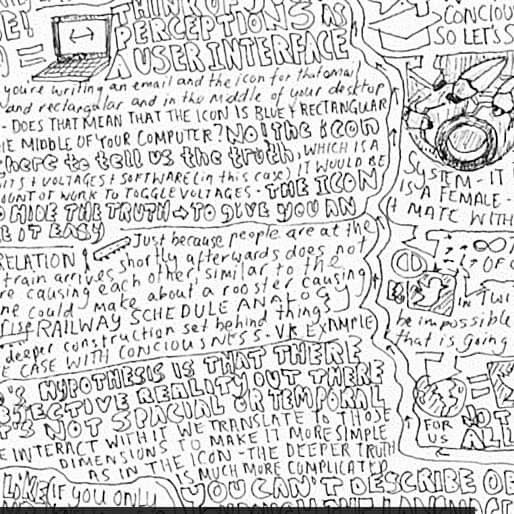 E!
THINK OF OUR
PERCEPTIONS AS
A USER INTERFACE
you're writing an email and the icon for that email
and rectangular and in the middle of your desktop
- DOES THAT MEAN THAT THE ICON IS BLUE & RECTANGULAR
MIDDLE OF YOUR COMPUTER? NO! the icon
here to tell us the truth, WHICH IS A
+ VOLTAGES + SOFTWARE (in this case) IT WOULD BE
OF WORK TO TOGGLE VOLTAGES - THE ICON
HIDE THE TRUTH → TO GIVE YOU AN
IT EASY
RELATION
Just because people are at the
train arrives shortly afterwards does not
causing each other, similar to the
could make about a rooster causing
RAILWAY SCHEDULE ANALOGY
deeper construction set behind things
CASE WITH CONCIOUSNESS. VR EXAMPLE
'S HYPOTHESIS IS THAT THERE
REALITY OUT THERE
'S NOT SPACIAL OR TEMPORAL
INTERACT WITH IT WE TRANSLATE TO THOSE
DIMENSIONS TO MAKE IT MORE SIMPLE
AS IN THE ICON - THE DEEPER TRUTH
IS MUCH MORE COMPLICATED
LIKE (IF YOU ONLY
YOU CAN'T DESCRIBE
THE
CONCIOU
SO LET'S
SYSTEM - IT
IS A FEMALE -
MATE WITH
OF
IN
be impossible
that is going
FOR
US
NOT
ALL